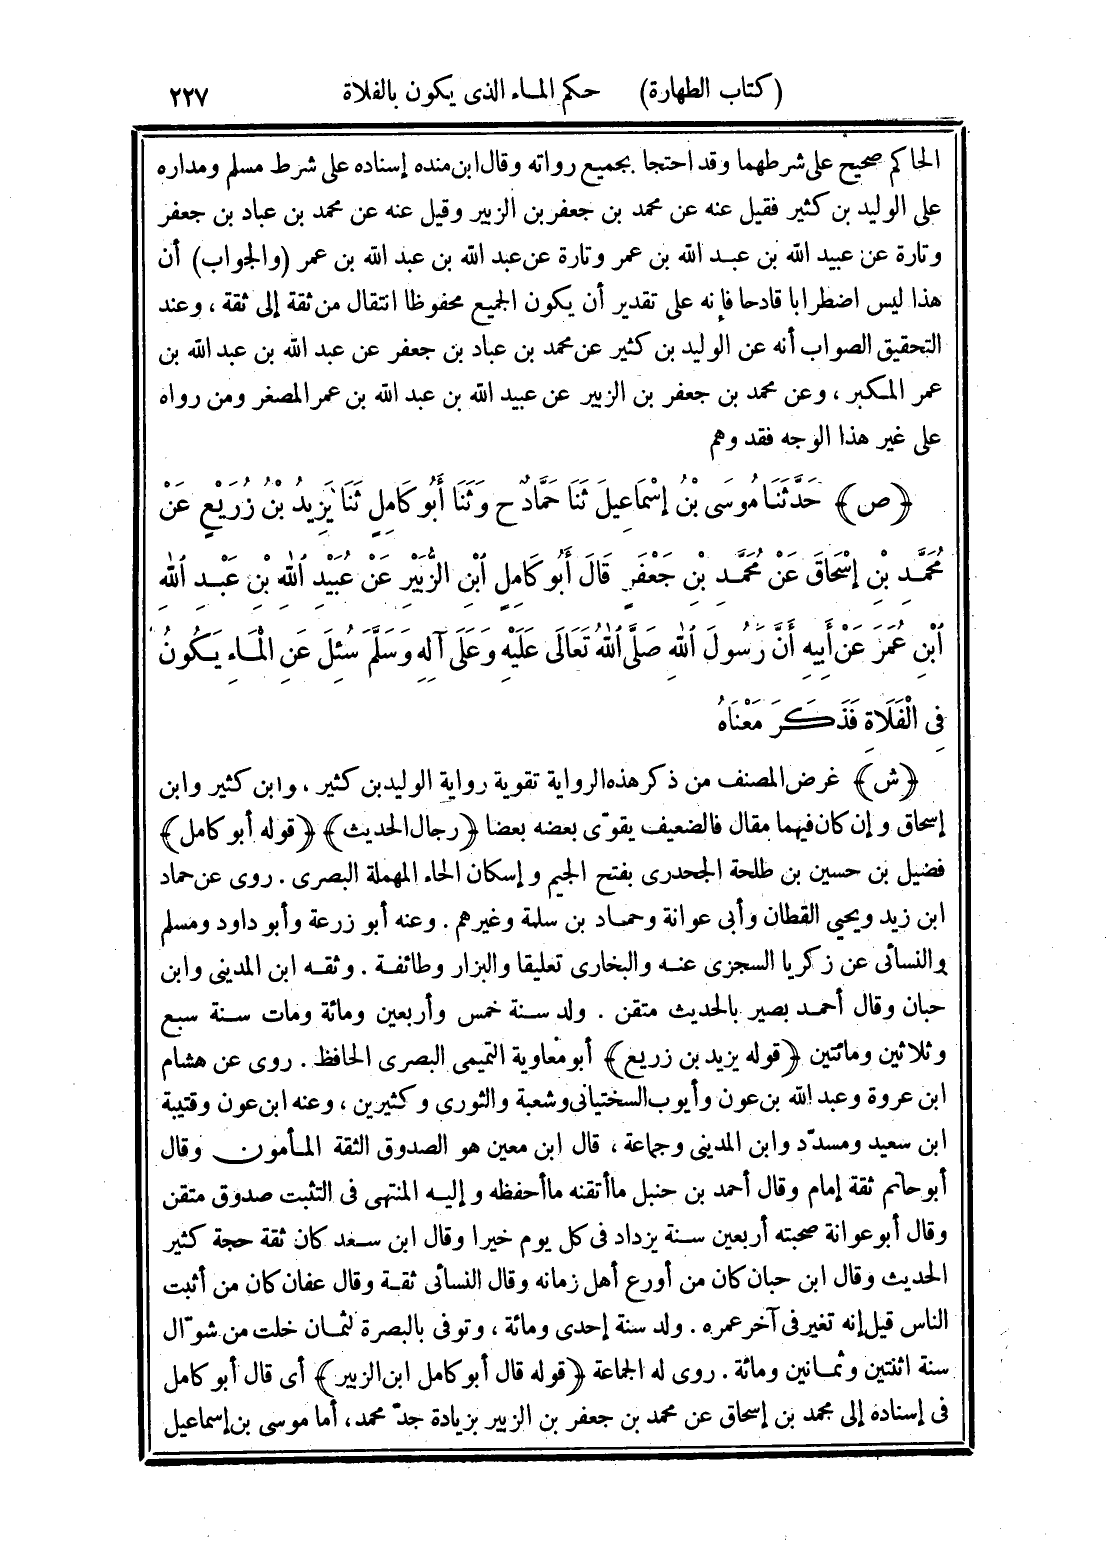 (كتاب الطهارة) حكم المـاء الذى يكون بالفلاة ٢٢٧
الحاكم صحيح على شرطهما وقد احتجا بجميع رواته وقال ابن منده إسناده على شرط مسلم ومداره
على الوليد بن كثير فقيل عنه عن محمد بن جعفر بن الزبير وقيل عنه عن محمد بن عباد بن جعفر
وتارة عن عبيد الله بن عبد الله بن عمر وتارة عن عبد الله بن عبد الله بن عمر (والجواب) أن
هذا ليس اضطرابا قادحا فإنه على تقدير أن يكون الجميع محفوظا انتقال من ثقة إلى ثقة ، وعند
التحقيق الصواب أنه عن الوليد بن كثير عن محمد بن عباد بن جعفر عن عبد الله بن عبد الله بن
عمر المكبر ، وعن محمد بن جعفر بن الزبير عن عبيد الله بن عبد الله بن عمر المصغر ومن رواه
على غير هذا الوجه فقد وهم
﴿ص﴾ حَدَّثَنَا مُوسَى بْنُ إِسْمَاعِيلَ ثَنَا حَمَّادٌ ح وَثَنَا أَبُو كَامِلٍ ثَنَا يَزِيدُ بْنُ زُرَيْعٍ عَنْ
مُحَمَّدِ بْنِ إِسْحَاقَ عَنْ مُحَمَّدِ بْنِ جَعْفَرٍ قَالَ أَبُو كَامِلٍ ابْنِ الزُّبَيْرِ عَنْ عُبَيْدِ اللهِ بْنِ عَبْدِ اللهِ
ابْنِ عُمَرَ عَنْ أَبِيهِ أَنَّ رَسُولَ اللهِ صَلَّى اللهُ تَعَالَى عَلَيْهِ وَعَلَى آلِهِ وَسَلَّمَ سُئِلَ عَنِ الْمَاءِ يَكُونُ
فِي الْفَلَاةِ فَذَكَرَ مَعْنَاهُ
﴿ش﴾ غرض المصنف من ذكر هذه الرواية تقوية رواية الوليد بن كثير ، وابن كثير وابن
إسحاق وإن كان فيهما مقال فالضعيف يقوّى بعضه بعضا ﴿رجال الحديث﴾ ﴿قوله أبو كامل﴾
فضيل بن حسين بن طلحة الجحدرى بفتح الجيم وإسكان الحاء المهملة البصرى . روى عن حماد
ابن زيد ويحيى القطان وأبى عوانة وحمـاد بن سلمة وغيرهم . وعنه أبو زرعة وأبو داود ومسلم
والنسائى عن زكريا السجزى عنـه والبخارى تعليقا والبزار وطائفـة . وثقـه ابن المدينى وابن
حبان وقال أحمـد بصير بالحديث متقن . ولد سـنة خمس وأربعين ومائة ومات سـنة سبع
وثلاثين ومائتين ﴿قوله يزيد بن زريع﴾ أبو معاوية التميمى البصرى الحافظ . روى عن هشام
ابن عروة وعبد الله بن عون وأيوب السختيانى وشعبة والثورى وكثيرين ، وعنه ابن عون وقتيبة
ابن سعيد ومسدّد وابن المدينى وجماعة ، قال ابن معين هو الصدوق الثقة المـأمون وقال
أبو حاتم ثقة إمام وقال أحمد بن حنبل ما أتقنه ما أحفظه وإليـه المنتهى فى التثبت صدوق متقن
وقال أبو عوانة صحبته أربعين سـنة يزداد فى كل يوم خيرا وقال ابن سـعد كان ثقة حجة كثير
الحديث وقال ابن حبان كان من أورع أهل زمانه وقال النسائى ثقـة وقال عفان كان من أثبت
الناس قيل إنه تغير فى آخر عمره . ولد سنة إحدى ومائة ، وتوفى بالبصرة لثمـان خلت من شوّال
سنة اثنتين وثمـانين ومائة . روى له الجماعة ﴿قوله قال أبو كامل ابن الزبير﴾ أى قال أبو كامل
فى إسناده إلى محمد بن إسحاق عن محمد بن جعفر بن الزبير بزيادة جدّ محمد ، أما موسى بن إسماعيل